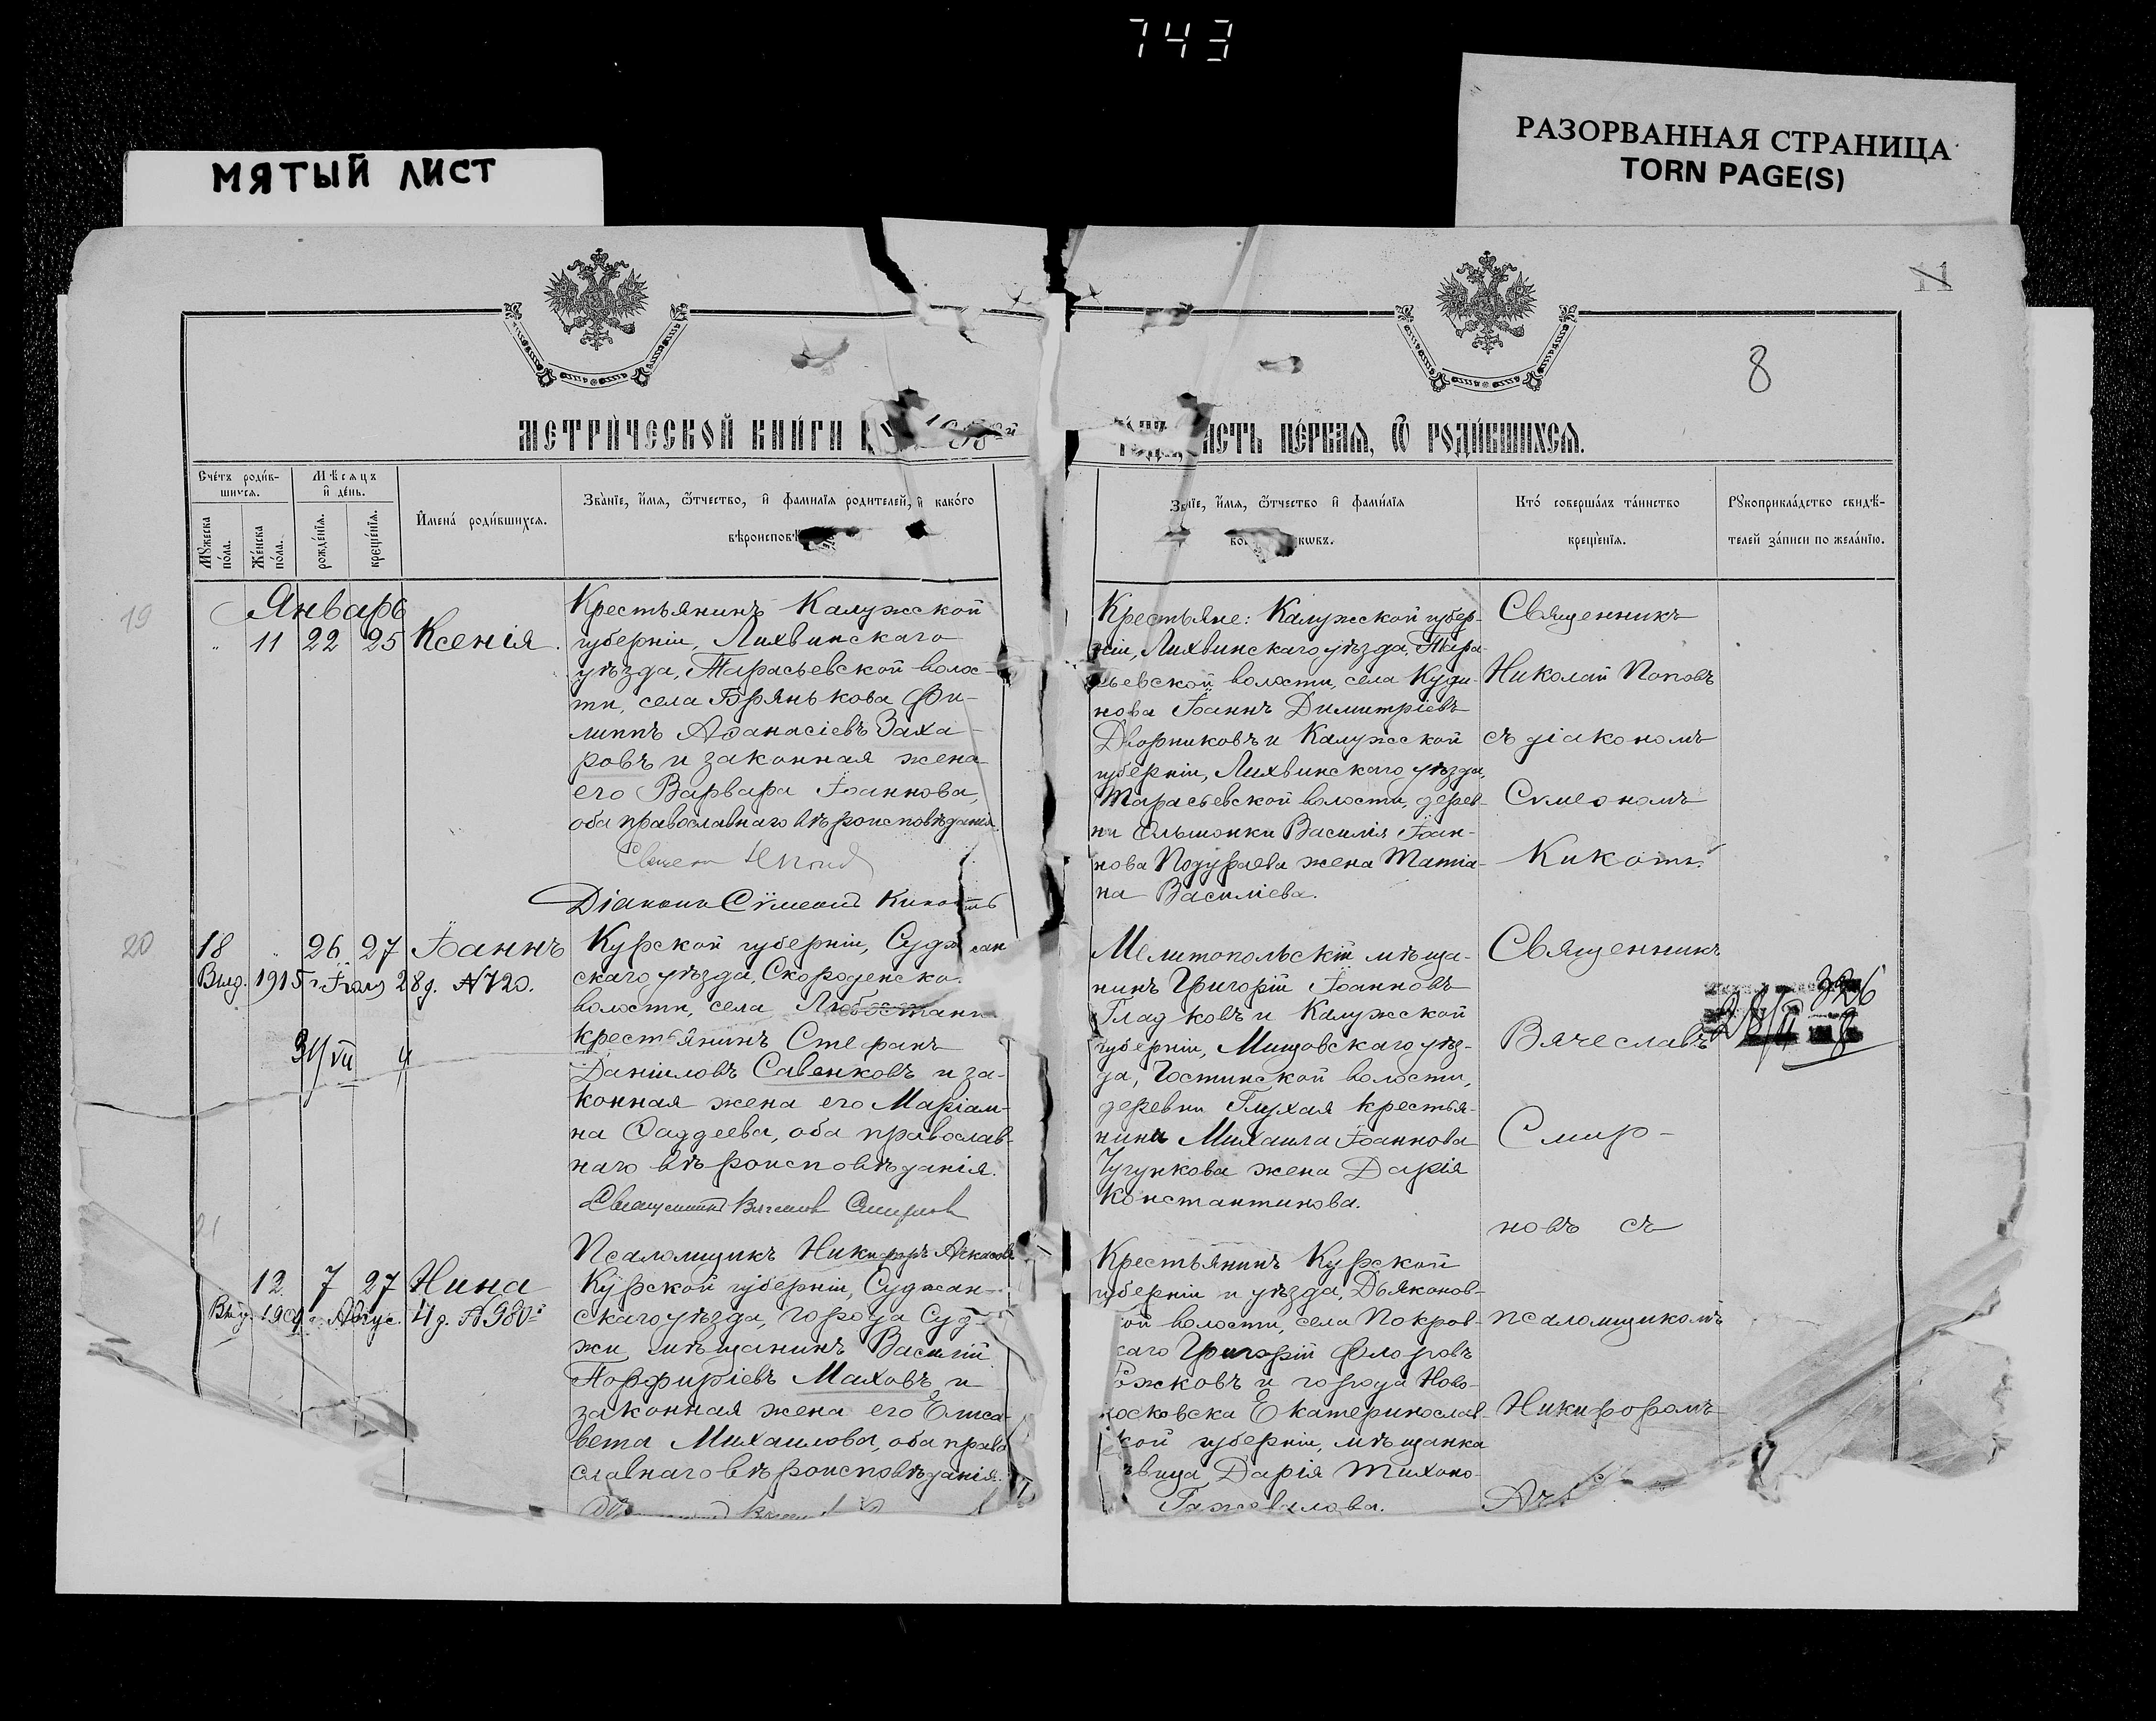 743
МЯТЫЙ ЛИСТ
РАЗОРВАННАЯ СТРАНИЦА
TORN PAGE(S)
11
8
МЕТРИЧЕСКОЙ КНИГИ
ЧАСТЬ ПЕРВАЯ, Ѡ РОДИВШИХСЯ.
Счетъ родив-
шихся.
Мѣсяцъ
и день.
Мужеска
пола.
Женска
пола.
рожденія.
крещенія.
Имена родившихся.
Званіе, имя, ѿтчество, и фамилія родителей, и какого
вѣроисповѣ
Званіе, имя, ѿтчество и фамилія
Кто совершалъ таинство
крещенія.
Рукоприкладство свидѣ-
телей записи по желанію.
19
Январь
11 22 25 Ксенія.
Крестьянинъ Калужской
губерніи, Лихвинскаго
уѣзда, Тарасьевской волос-
ти, села Горянькова Фи-
липпъ Аѳанасіевъ Заха-
ровъ и законная жена
его Варвара Іоаннова,
оба православнаго вѣроисповѣданія.
Діаконъ Сѵмеонъ Кикоть
Крестьяне: Калужской губер-
ніи, Лихвинскаго уѣзда, Тара-
сьевской волости, села Куди-
нова Іоаннъ Димитріевъ
Дворниковъ и Калужской
губерніи, Лихвинскаго уѣзда,
Тарасьевской волости, дерев-
ни Ольшонки Василія Іоан-
нова Подураева жена Татіа-
на Василіева.
Священникъ
Николай Поповъ
съ діакономъ
Сѵмеономъ
Кикоть.
20
18 26 27 Іоаннъ
Выд. 1915 г. Іюля 28 д. №720.
31/VII
Курской губерніи, Суджан
скаго уѣзда, Скороденско
волости, села Любостани
крестьянинъ Стефанъ
Даніиловъ Савенковъ и за-
конная жена его Маріам-
на Ѳаддеева, оба православ-
наго вѣроисповѣданія.
Священникъ Вячеслав Смирнов
Псаломщикъ Никифоръ
Мелитопольскій мѣща-
нинъ Григорій Іоанновъ
Гладковъ и Калужской
губерніи, Мещовскаго уѣз-
да, Гостинской волости,
деревни Глухая крестья-
нина Михаила Іоаннова
Чугункова жена Дарія
Константинова.
Священникъ
Вячеславъ
Смир-
новъ съ
псаломщикомъ
Никифоромъ
326
21
12 7 27 Нина
Выд. 1909 г. Авгус. 4 д. №980
Курской губерніи, Суджан-
скаго уѣзда, города Суд-
жи мѣщанинъ Василій
Порфиріевъ Маховъ и
законная жена его Елиса-
вета Михаилова, оба право
славнаго вѣроисповѣданія.
Крестьянинъ Курской
губерніи и уѣзда, Дьяконов-
ой волости, села Покров-
каго Григорій Флоровъ
ожковъ и города Ново-
московска Екатеринослав-
кой губерніи, мѣщанка
вица Дарія Тихоно-